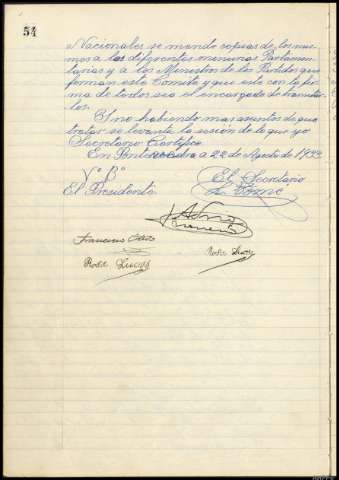 54
Nacionales se mande copias de los mis-
mos a las diferentes menurias Parlamen-
tarias y a los Ministros de los Partidos que
forman este Comite y que este con la fir-
ma de todos sea el encargado de tramitar-
los.
Y no habiendo mas asuntos de que
tratar se levanta la sesión de lo que yo
Secretario Certifico.
En Pontevedra a 22 de Agosto de 19
Vº Bº
El Presidente
El Secretario
Francisco
Rodri
Rodri